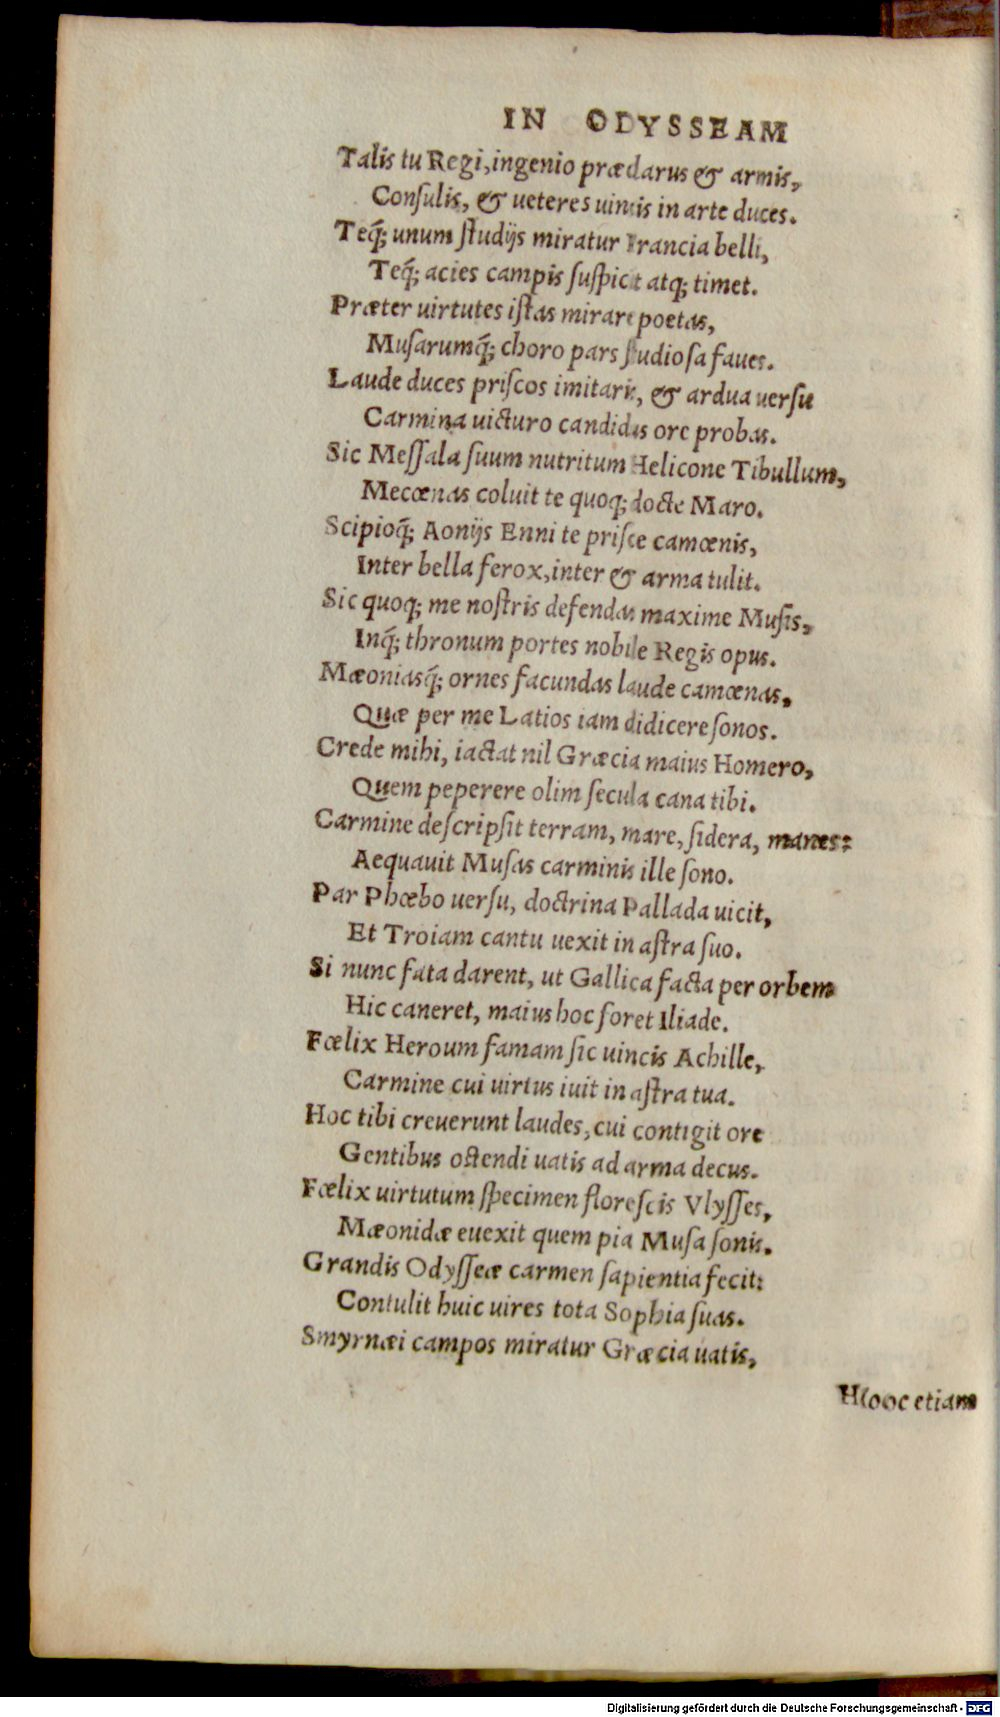 IN ODYSSEAM
Talis tu Regi, ingenio præclarus & armis,
Conſulis, & ueteres uincis in arte duces.
Teq́; unum ſtudijs miratur Francia belli,
Teq́; acies campis ſuſpicit atq; timet.
Præter uirtutes iſtas mirare poetas,
Muſarumq́; choro pars ſtudioſa faues.
Laude duces priſcos imitaris, & ardua uerſu
Carmina uicturo candidus ore probas.
Sic Meſſala ſuum nutritum Helicone Tibullum,
Mecœnas coluit te quoq; docte Maro.
Scipioq́; Aonijs Enni te priſce camœnis,
Inter bella ferox, inter & arma tulit.
Sic quoq; me noſtris defendas maxime Muſis,
Inq́; thronum portes nobile Regis opus.
Mæoniasq́; ornes facundas laude camœnas,
Quæ per me Latios iam didicere ſonos.
Crede mihi, iactat nil Græcia maius Homero,
Quem peperere olim ſecula cana tibi.
Carmine deſcripſit terram, mare, ſidera, manes:
Aequauit Muſas carminis ille ſono.
Par Phœbo uerſu, doctrina Pallada uicit,
Et Troiam cantu uexit in aſtra ſuo.
Si nunc fata darent, ut Gallica facta per orbem
Hic caneret, maius hoc foret Iliade.
Fœlix Heroum famam ſic uincis Achille,
Carmine cui uirtus iuit in aſtra tua.
Hoc tibi creuerunt laudes, cui contigit ore
Gentibus oſtendi uatis ad arma decus.
Fœlix uirtutum ſpecimen floreſcis Vlyſſes,
Mæonidæ euexit quem pia Muſa ſonis.
Grandis Odyſſeæ carmen ſapientia fecit:
Contulit huic uires tota Sophia ſuas.
Smyrnæi campos miratur Græcia uatis,
etiam
Digitalisierung gefördert durch die Deutsche Forschungsgemeinschaft - DFG